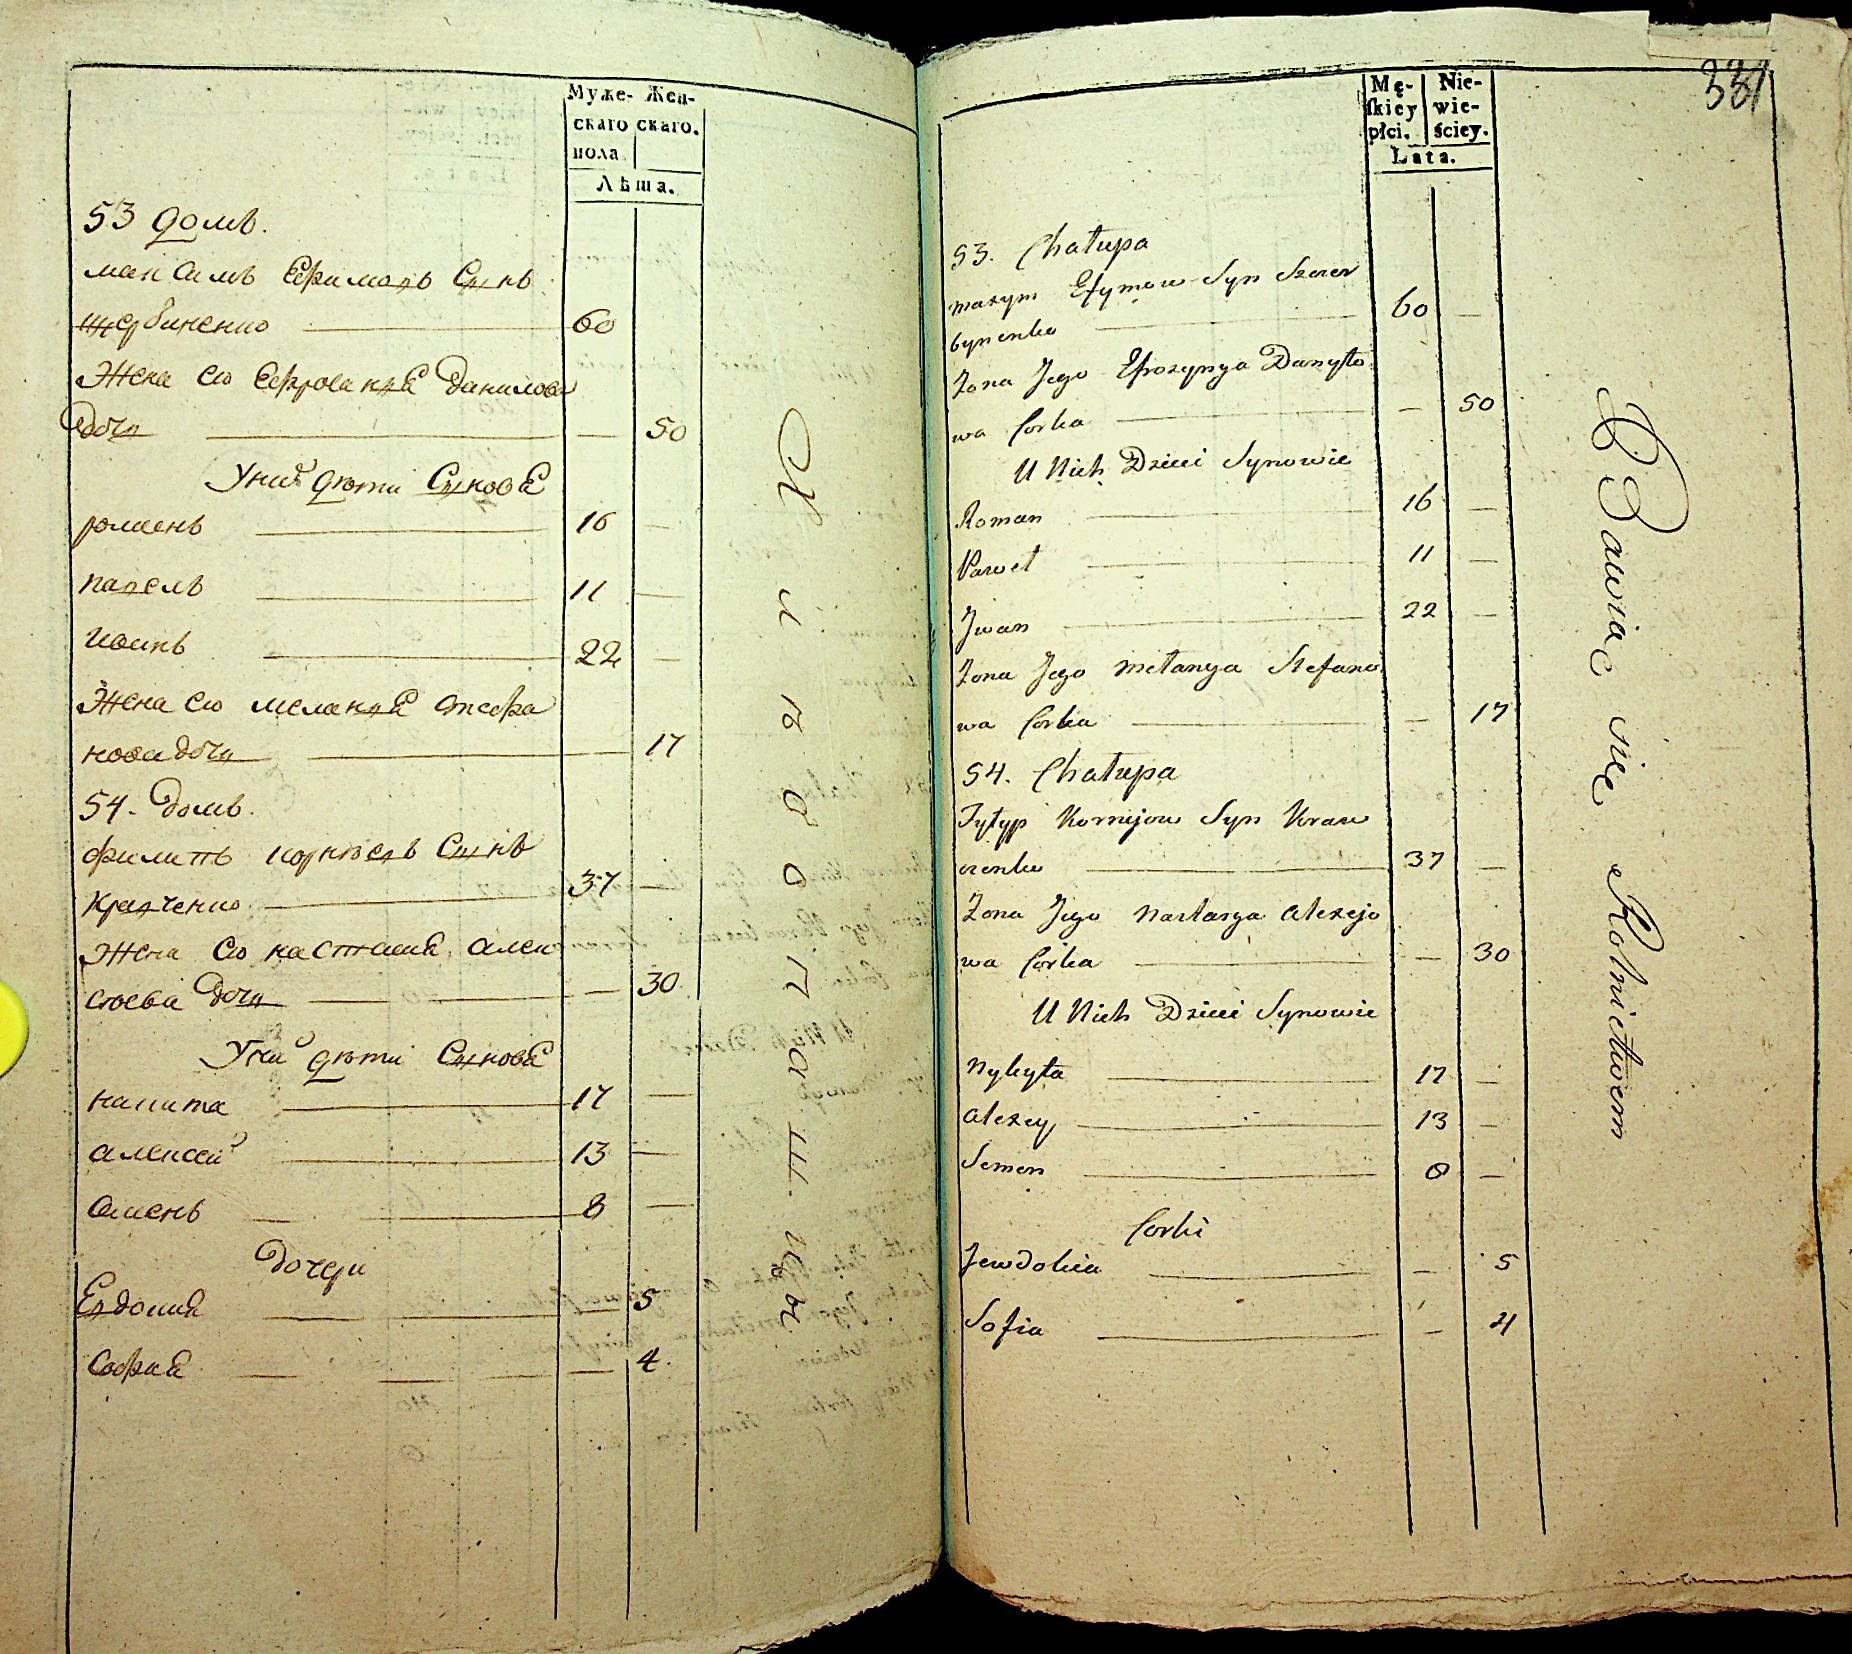 Муже- Жен-
скаго скаго.
пола
Лѣта.
53 домъ.
максимъ Ефимовъ Сынъ
щербиненко 60
Жена его Ефросинія Данилова
дочь — 50
У них дѣти Сыновя
романъ 16 —
павелъ 11 —
иванъ 22 —
Жена его меланія стефа
нова дочь — 17
54. домъ.
филипъ корнѣевъ Сынъ
кравченко 37 —
Жена его настасия алек
сѣева дочь — 30
У них дѣти Сыновя
никита 17 —
алексей 13 —
семенъ 8 —
дочери
Евдокия — 5
София — 4.
Хлѣбопашцы
331
Mę- Nie-
skiey wie-
płci. ściey.
Lata.
53. Chałupa
maxym Efymow Syn Szczer
bynenko 60 —
Żona Jego Efrozynya Danyło
wa Corka — 50
U Nich Dzieci Synowie
Roman 16 —
Paweł 11 —
Jwan 22 —
Żona Jego Mełanya Stefano
wa Corka — 17
54. Chałupa
Fyłyp Kornijow Syn Kraw
czenko 37 —
Żona Jego Nastasya Alexejo
wa Corka — 30
U Nich Dzieci Synowie
Nykyta 17 —
Alexey 13 —
Semen 8 —
Corki
Jewdokia — 5
Sofia — 4
Bawiąc się Rolnictwem